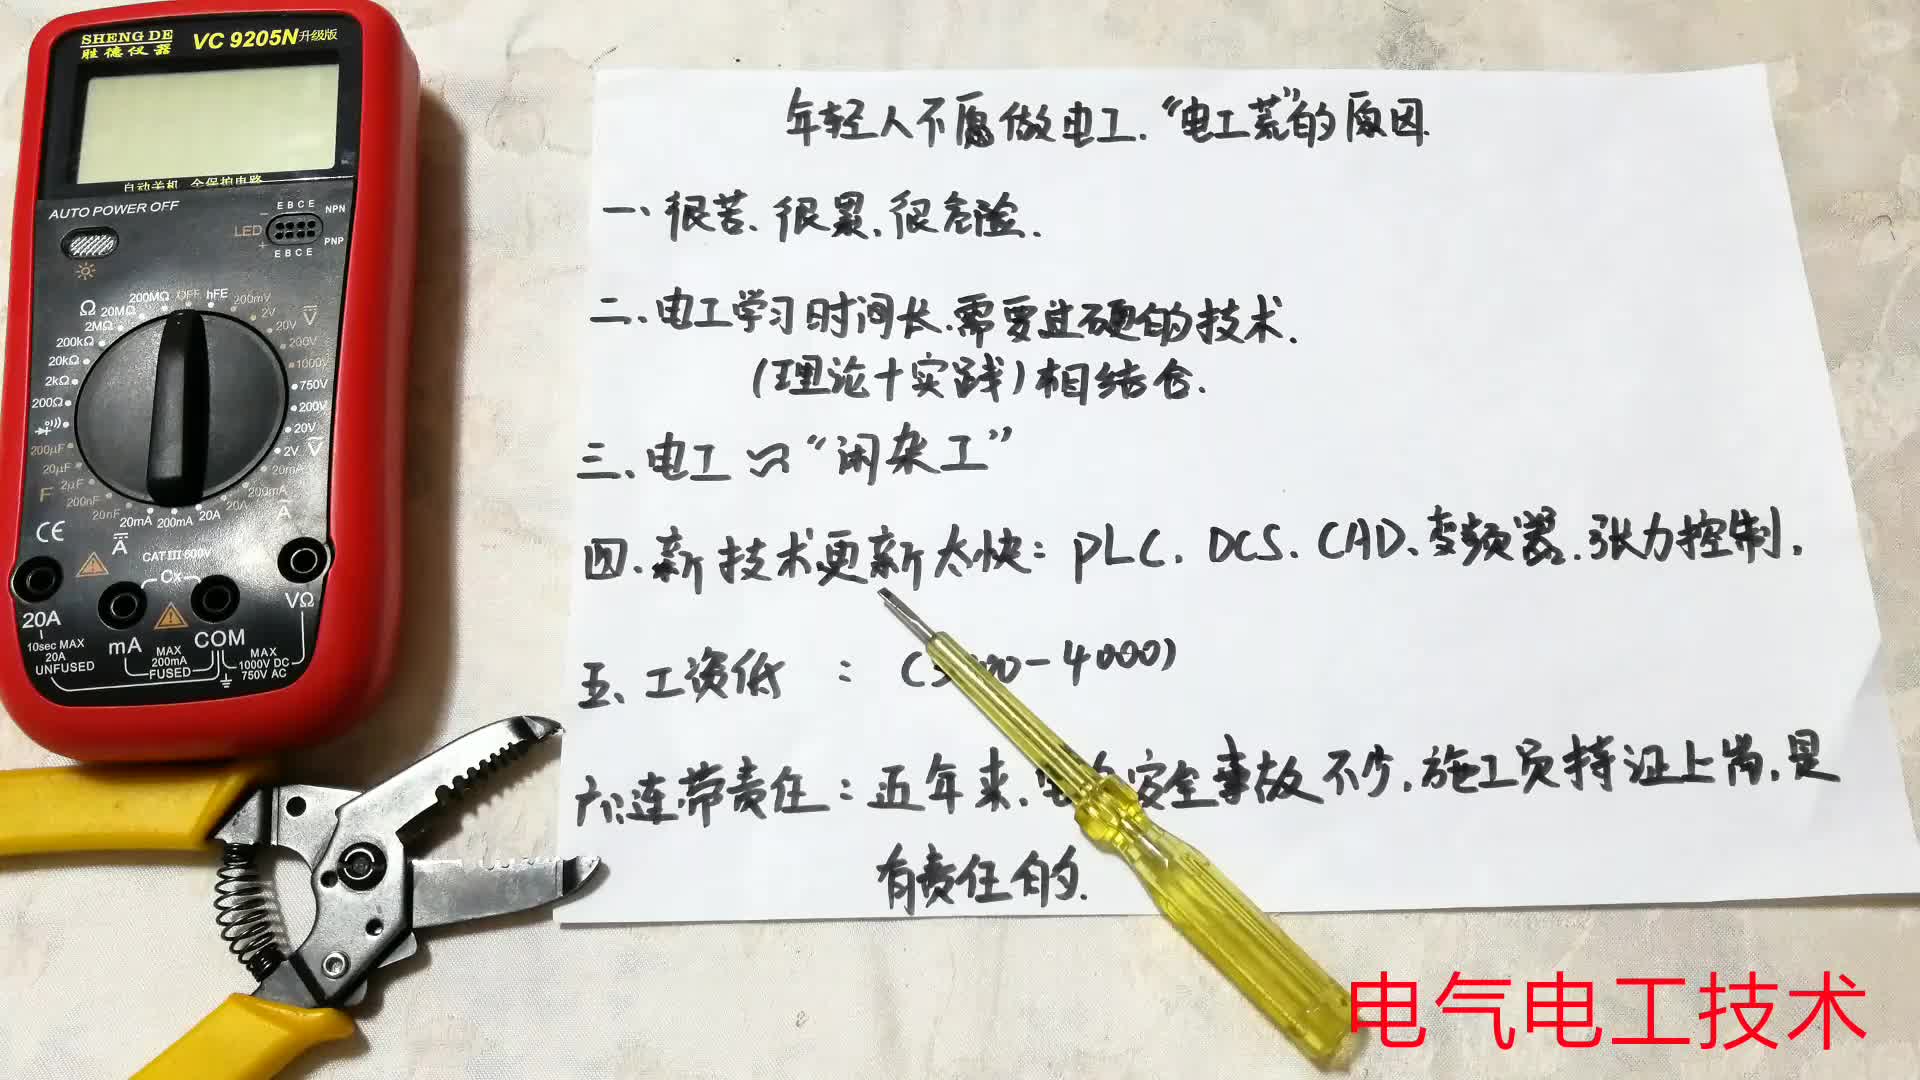 SHENG DE
胜德仪器
VC 9205N升级版
自动关机 全保护电路
AUTO POWER OFF
E B C E
NPN
LED
PNP
E B C E
200MΩ OFF hFE 200mV
Ω 20MΩ 2V
2MΩ 20V
200kΩ 200V
20kΩ 1000V
2kΩ 750V
200Ω 200V
20V
200μF 2V
20μF 20mA
F 2μF 200mA
200nF 20A
20nF 20mA 200mA 20A A
CE
CAT III 600V
Cx
20A
10sec MAX
20A
UNFUSED
mA
MAX
200mA
FUSED
COM
MAX
1000V DC
750V AC
VΩ
年轻人不愿做电工."电工荒"的原因.
一、很苦、很累、很危险.
二、电工学习时间长.需要过硬的技术.
(理论+实践)相结合.
三、电工 "闲杂工"
四、新技术更新太快: PLC. DCS. CAD、变频器.张力控制.
五、工资低 : -4000)
六:连带责任:五年来. 安全事故不少.施工员持证上岗.是
有责任的.
电气电工技术